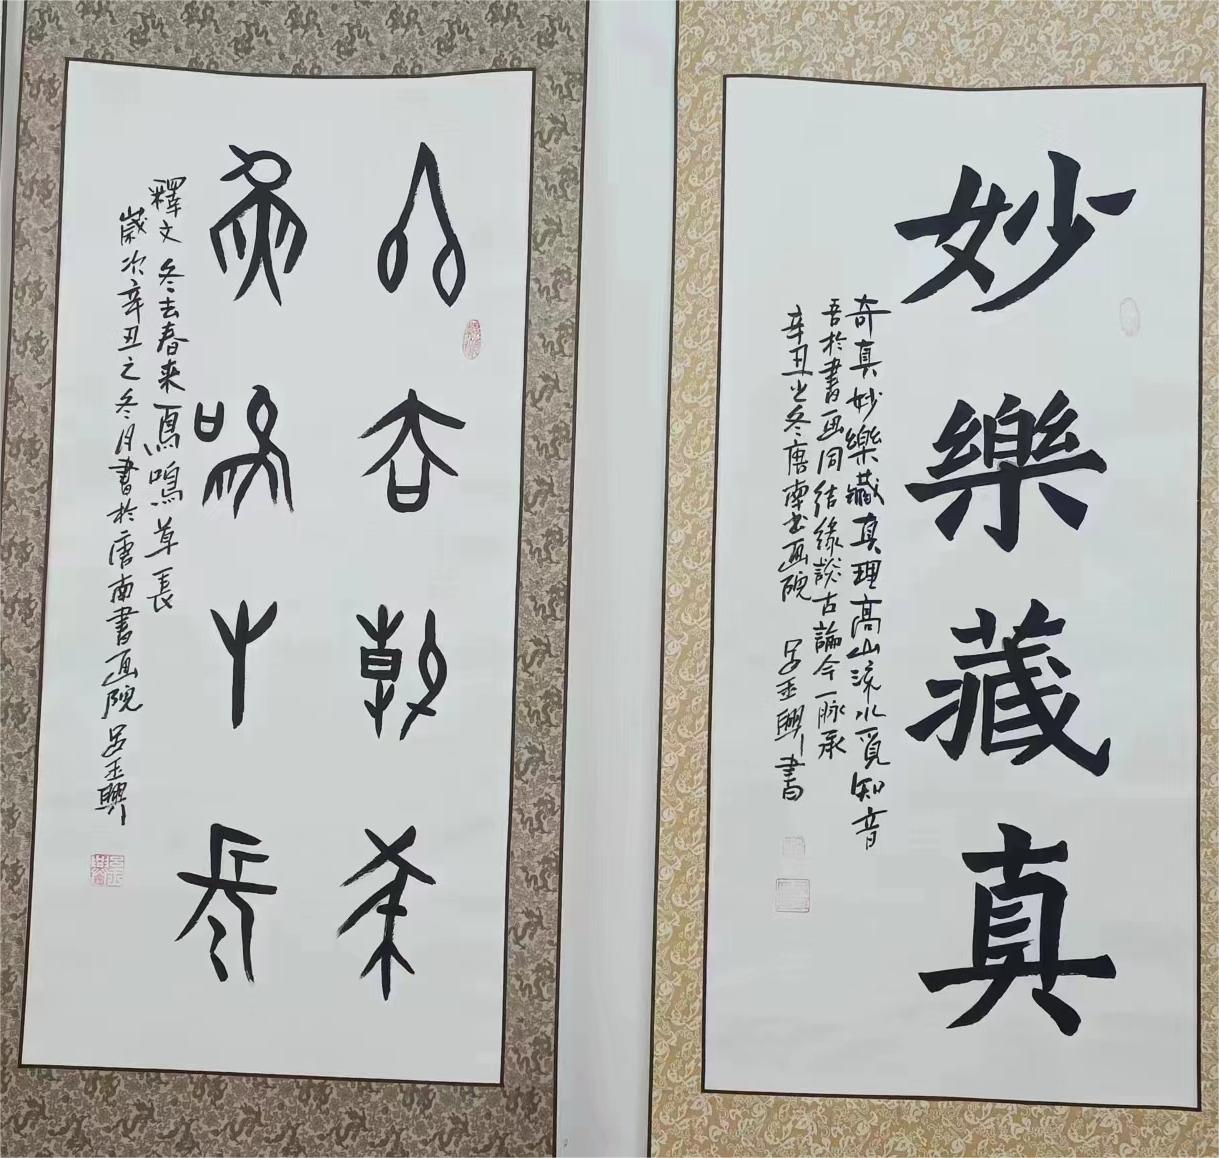 妙樂藏真
奇真妙樂藏真理高山流水覓知音
吾於書画同結緣談古論今一脉承
辛丑之冬唐南书画院 吕玉興書
冬去春来
鳥鳴草長
釋文 冬去春来鳥鳴草長
歲次辛丑之冬月書於唐南書画院 吕玉興